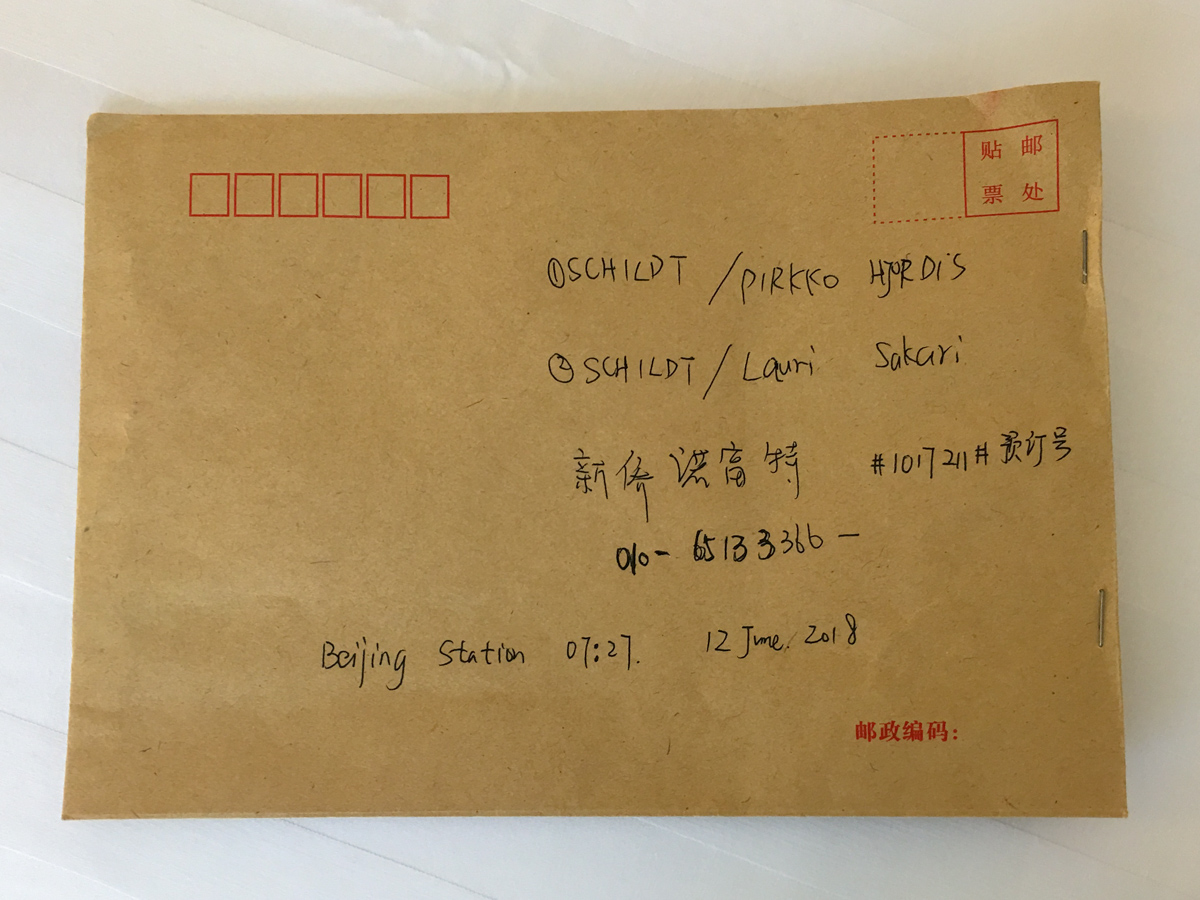 贴 邮
票 处
①SCHILDT / PIRKKO HJORDIS
②SCHILDT / Lauri Sakari
新侨诺富特 #1017211#预订号
010- 65133366 -
Beijing Station 07:27. 12 June. 2018
邮政编码: